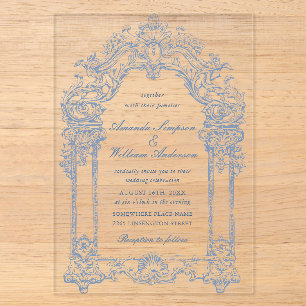 together
with their families
Amanda Simpson
&
William Anderson
cordially invite you to their
wedding celebration
AUGUST 14TH, 20XX
at six o'clock in the evening
SOMEWHERE PLACE NAME
LINSENGTON STREET
Reception to follow